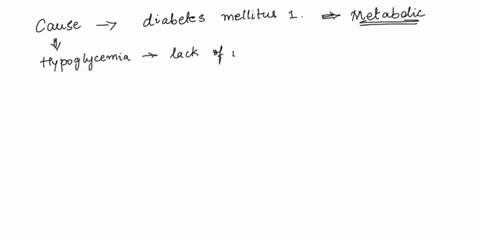 Cause → diabetes mellitus 1. ⇒ Metabolic
⇓
Hypoglycemia → lack of